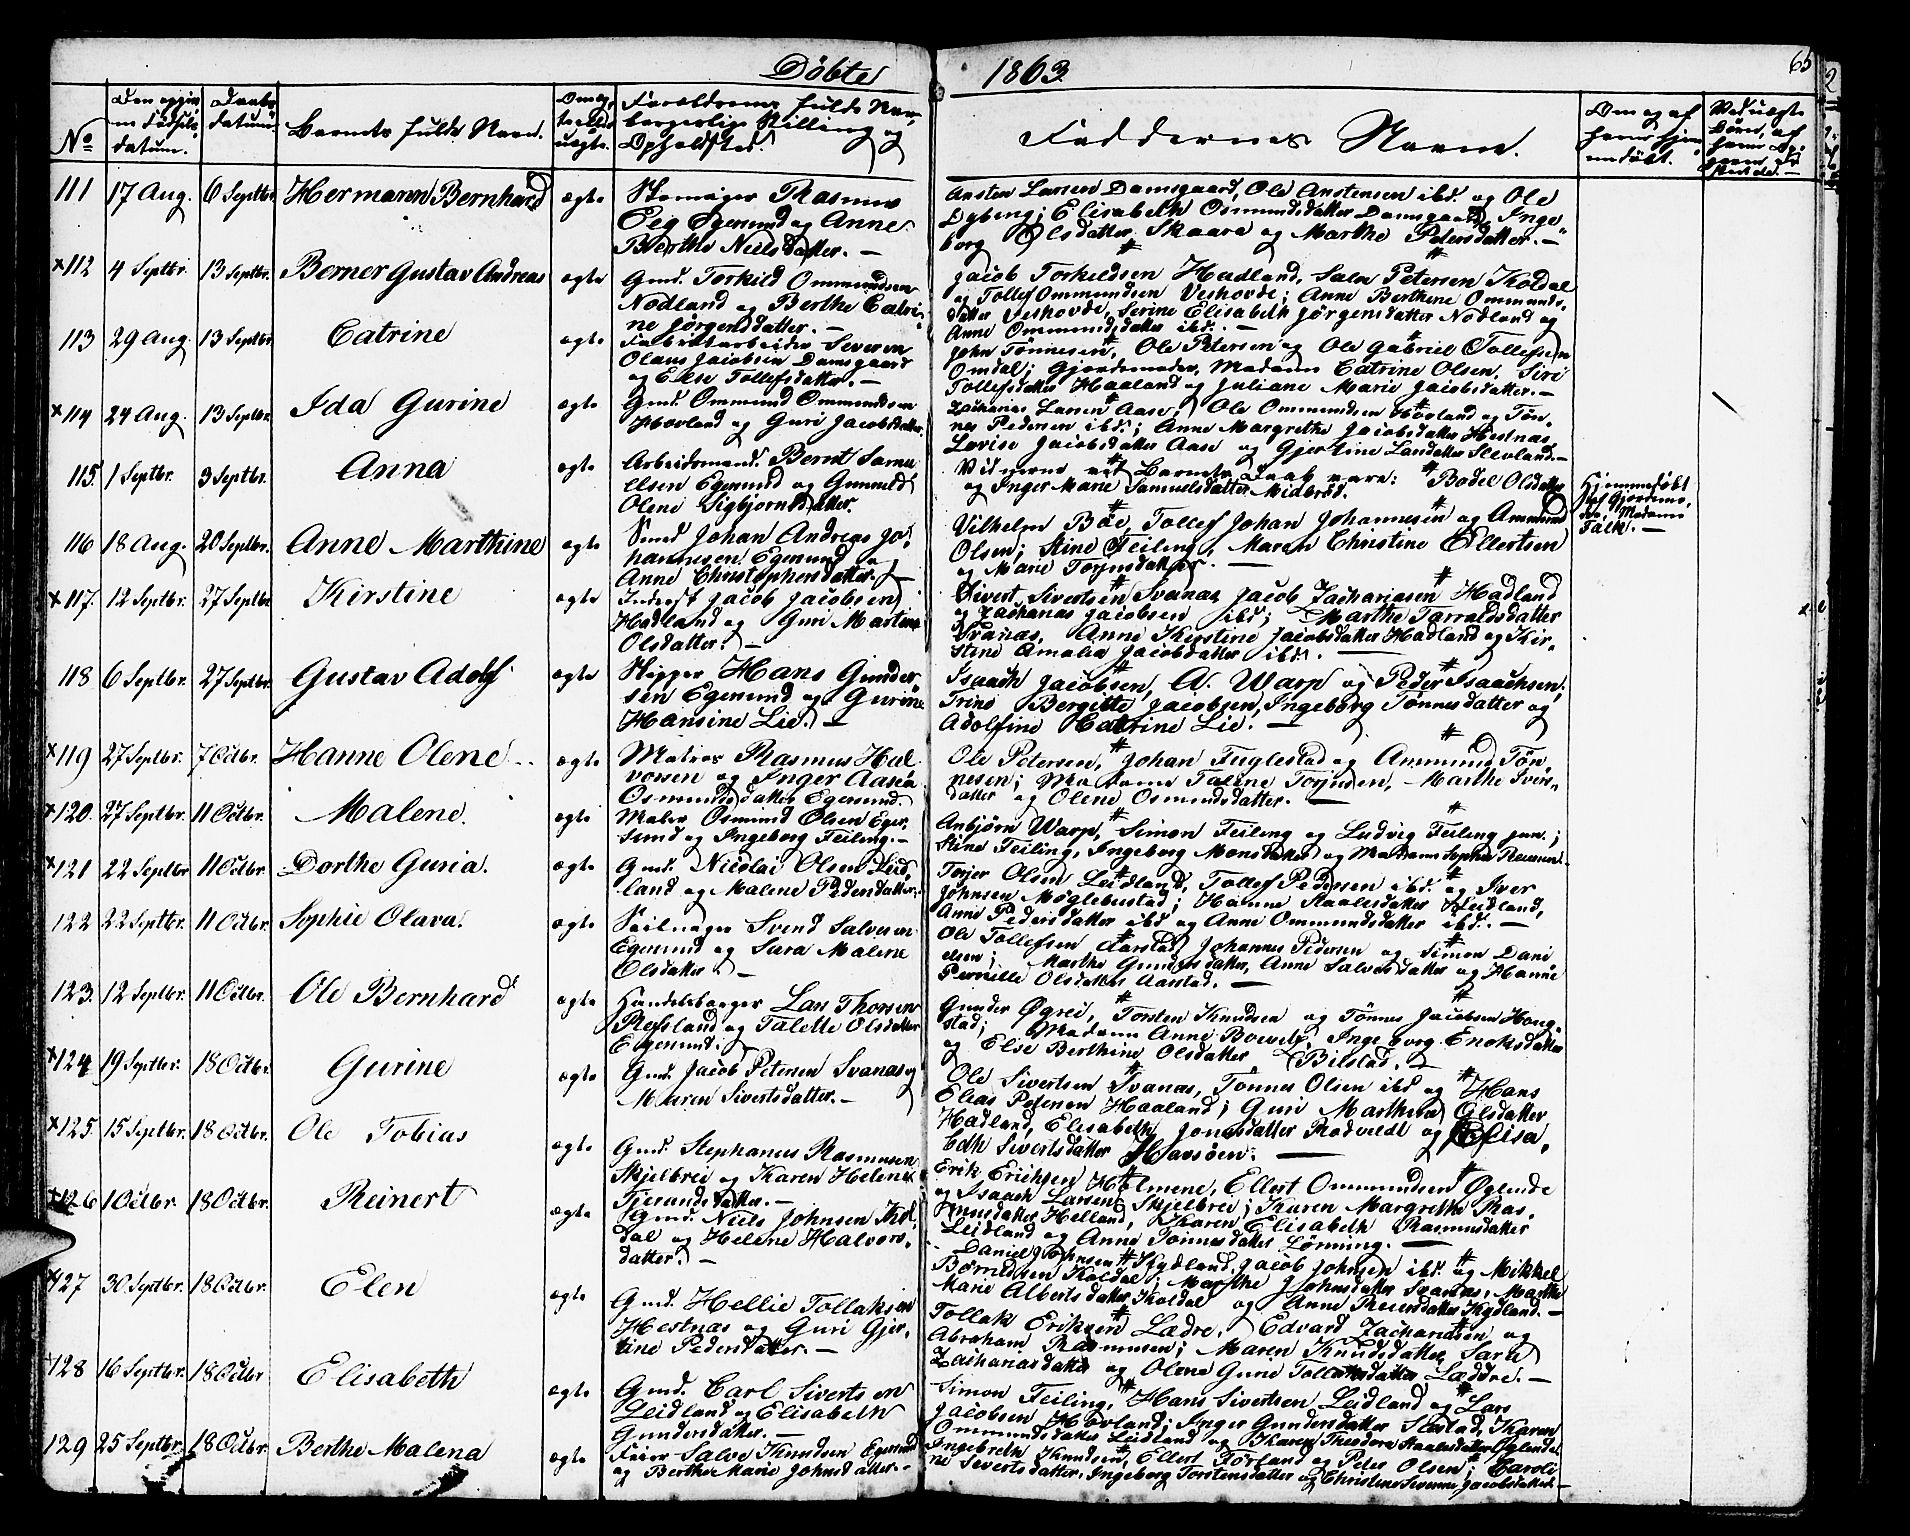 Døbte 1863. 65
No
Den opgivne Fødselsdatum.
Daabsdatum
Barnets fulde Navn.
Om ægte eller uægte.
Forældrenes fulde Navn, borgerlige Stilling og Opholdsted.
Faddernes Navne.
Om og af hvem hjemmedøbt.
111 17 Aug. 6 Septbr. Hermann Bernhard ægte
Skomager Rasmus
Eeg Egersund og Anne
Berthe Nielsdatter. —
Ansten Larsen Damsgaard, Ole Anstensen ibd. og Ole
Dyberg; Elisabeth Osmundsdatter Damsgaard, Inge-
borg Olsdatter Skaara og Marthe Petersdatter. —
×112 4 Septbr. 13 Septbr. Berner Gustav Andreas ægte
Gmd. Torkild Ommundsen
Nodland og Berthe Catri-
ne Jørgensdatter. —
Jacob Torkildsen Hadland, Salve Petersen Koldal
og Tollef Ommundsen Veshovde; Anne Berthine Ommunds-
datter Veshovde, Serine Elisabeth Jørgensdatter Nodland og
Anne Ommundsdatter ibd. —
113 29 Aug. 13 Septbr. Catrine ægte
Fabrikarbeider Severin
Olaus Jacobsen Damsgaard
og Else Tollefsdatter. —
John Tønnesen, Ole Petersen og Ole Gabriel Tollefsen
Omdal; Gjordemoder Madame Catrine Olsen, Siri
Tollefsdatter Haaland og Juliane Marie Jacobsdatter. —
×114 24 Aug. 13 Septbr. Ida Gurine ægte
Gmd. Ommund Ommundsen
Hovland og Guri Jacobsdatter.
Zacharias Larsen Aase, Ole Ommundsen Hovland og Tøn-
nes Pedersen ibd.; Anne Margrethe Jacobsdatter Hestnæs,
Lovise Jacobsdatter Aase og Gjertine Larsdatter Sleveland. —
115. 1 Septbr. 3 Septbr. Anna ægte
Arbeidsmand Bernt Samu-
elsen Egersund og Gunhild
Olene Sigbjørnsdatter.
Vidnerne ved Barnets Daab vare: Bodel Olsdatter
og Inger Marie Samuelsdatter Midbrød.
Hjemmedøbt
af Gjordemo-
der Madame
Falk. —
116 18 Aug. 20 Septbr. Anne Marthine ægte
Smed Johan Andreas Jo-
hannesen Egersund og
Anne Christophersdatter. —
Vilhelm Bøe, Tollef Johan Johannesen og Ammund
Olsen; Stine Feiling, Maren Christine Ellertsen
og Marie Torjusdatter. —
×117. 12 Septbr. 27 Septbr. Kirstine ægte
Inderst Jacob Jacobsen
Hadland og Guri Martine
Olsdatter. —
Sivert Sivertsen Svanæs, Jacob Zachariasen Hadland
og Zacharias Jacobsen ibd.; Marthe Tarraldsdatter
Svanæs, Anne Kirstine Jacobsdatter Hadland og Kir-
stine Amalia Jacobsdatter ibd. —
118 6 Septbr. 27 Septbr. Gustav Adolf ægte
Skipper Hans Gunder-
sen Egersund og Gurine
Hansine Lie. —
Isaach Jacobsen, A. Warp og Peder Isaachsen;
Trine Bergitte Jacobsen, Ingeborg Tønnesdatter og
Adolfine Catrine Lie. —
×119 27 Septbr. 7 Octbr. Hanne Olene ægte
Matros Rasmus Hal-
vorsen og Inger Aasea
Osmundsdatter Egersund.
Ole Petersen, Johan Fuglestad og Ammund Tøn-
nesen; Madame Taline Torjusen, Marthe Svens-
datter og Olene Osmundsdatter. —
×120. 27 Septbr. 11 Octbr. Malene. ægte
Maler Osmund Olsen Eger-
sund og Ingeborg Feiling. —
Anbjørn Warp, Simon Feiling og Ludvig Feiling jun.;
Stine Feiling, Ingeborg Monsdatter og Madame Sophie
×121 22 Septbr 11 Octbr. Dorthe Guria. ægte
Gmd. Nicolai Olsen Leid-
land og Malene Pedersdatter.
Torjer Olsen Leidland, Tollef Pedersen ibd. og Iver
Johnsen Møglebustad; Hanne Raalesdatter Leidland,
Anne Pedersdatter ibd og Anne Ommundsdatter ibd. —
122 22 Septbr. 11 Octbr. Sophie Olava. ægte
Seilmager Svend Salvesen
Egersund og Sara Malene
Olsdatter. —
Ole Tollefsen Aarstad, Johannes Pedersen og Simon Dani-
elsen; Marthe Gundersdatter, Anne Salvesdatter og Hanne
Pernille Olsdatter Aarstad. —
123. 12 Septbr. 11 Octbr. Ole Bernhard ægte
Handelsborger Lars Thorsen
Røfsland og Talette Olsdatter
Egersund. —
Gunder Øgrei, Torsten Knudsen og Tønnes Jacobsen Houg-
stad; Madame Anne Bowitz, Ingeborg Enoksdatter
og Else Berthine Olsdatter Bilstad. —
×124 19 Septbr. 18 Octbr. Gurine ægte
Gmd. Jacob Petersen Svanæs og
Maren Sivertsdatter. —
Ole Sivertsen Svanæs, Tønnes Olsen ibd og Hans
Elias Petersen Haaland; Guri Marthea Olsdatter
Hadland, Elisabeth Jonasdatter Rodvedt og Elisa-
beth Sivertsdatter Havsøen. —
×125. 15 Septbr. 18 Octbr. Ole Tobias ægte
Gmd. Stephanus Rasmusen
Skjelbrei og Karen Helene
Tjerandsdatter. —
Erik Erichsen Holmene, Ellert Ommundsen Øglende
og Isaach Larsen Skjelbrei; Karen Margrethe Ras-
musdatter Helland, Karen Elisabeth Rasmusdatter
Leidland og Anne Tønnesdatter Lørning. —
×126 1 Octbr. 18 Octbr. Reinert ægte
Gmd. Niels Johnsen Kol-
dal og Helene Halvors-
datter. —
Daniel Johnsen Kydland, Jacob Johnsen ibd. og Mikkel
Børnildsen Koldal; Marthe Johnsdatter Svanæs, Marthe
Marie Albertsdatter Koldal og Anne Reiersdatter Kydland. —
×127 30 Septbr. 18 Octbr. Elen ægte
Gmd. Hellie Tollaksen
Hestnæs og Guri Gjer-
tine Pedersdatter. —
Tollak Eriksen Lædre, Edvard Zachariasen og
Abraham Rasmusen; Maren Knudsdatter, Sara
Zachariasdatter og Olene Gurie Tollaksdatter Læddre. —
128 16 Septbr. 18 Octbr Elisabeth ægte
Gmd. Carl Sivertsen
Leidland og Elisabeth
Gundersdatter.
Simon Feiling, Hans Sivertsen Leidland og Lars
Jacobsen Hovland; Inger Gundersdatter Skstad, Karen
Ommundsdatter Leidland og Karen Theodora Raalesdatter Øglende.
129 25 Septbr. 18 Octbr. Berthe Malena ægte
Feier Salve Knudsen Egersund
og Berthe Marie Johnsdatter. —
Ingebreth Knudsen, Ellert Rørland og Peter Olsen; Caroli-
ne Sivertsdatter, Ingeborg Torstensdatter og Christine Severine Jacobsdatter. —